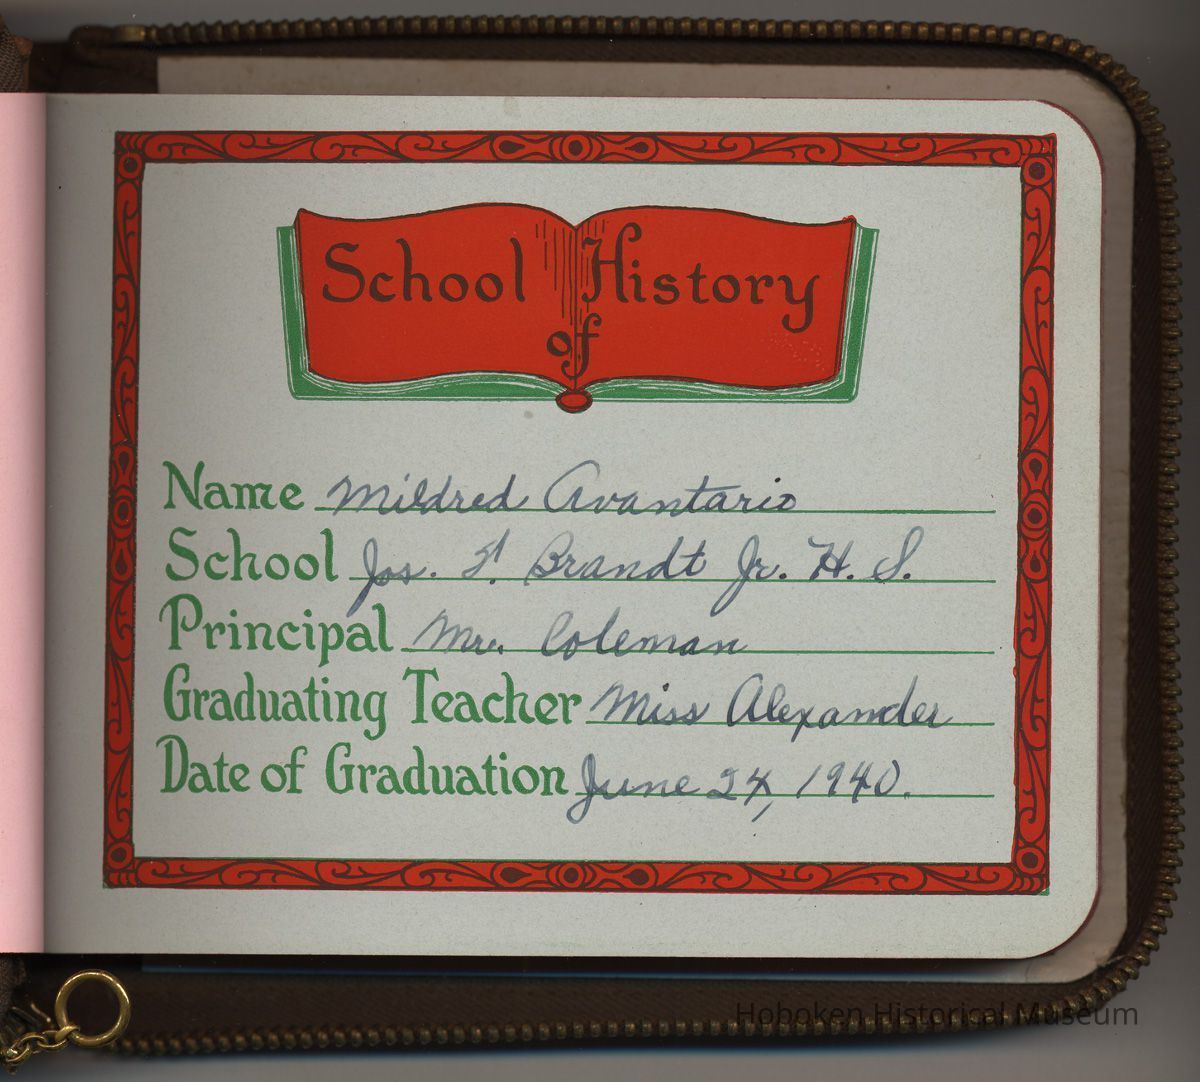 School History
of
Name Mildred Avantario
School Jos. F. Brandt Jr. H. S.
Principal Mr. Coleman
Graduating Teacher Miss Alexander
Date of Graduation June 24, 1940.
Hoboken Historical Museum